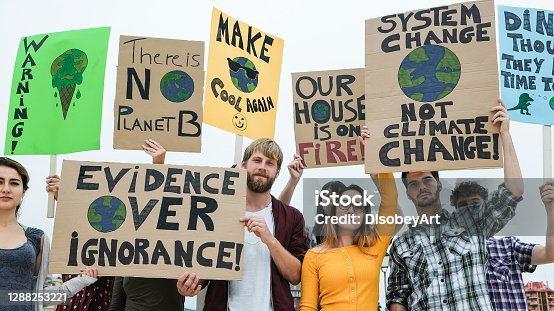 WARNING!
THERE IS
NO
PLANET B
MAKE
COOL AGAIN
OUR
HOUSE
IS ON
FIRE!
SYSTEM
CHANGE
NOT
CLIMATE
CHANGE!
DIN
THOU
THEY
TIME TO
EVIDENCE
OVER
IGNORANCE!
iStock
Credit: DisobeyArt
1288253221